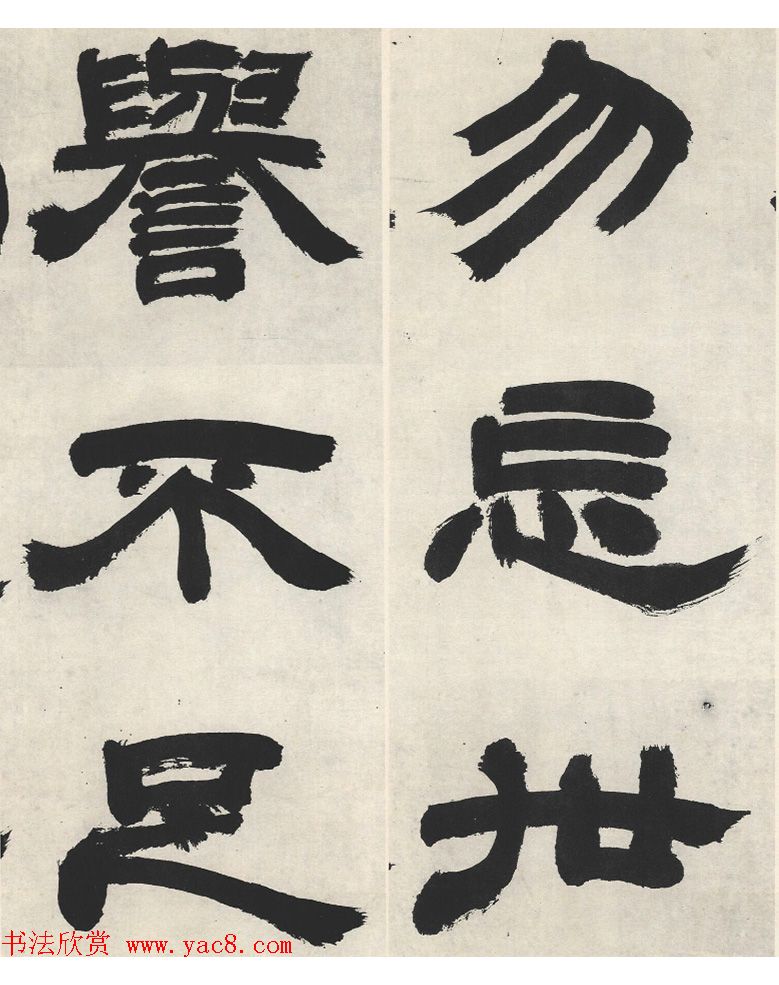 勿忘世
譽不足
书法欣赏 www.yac8.com